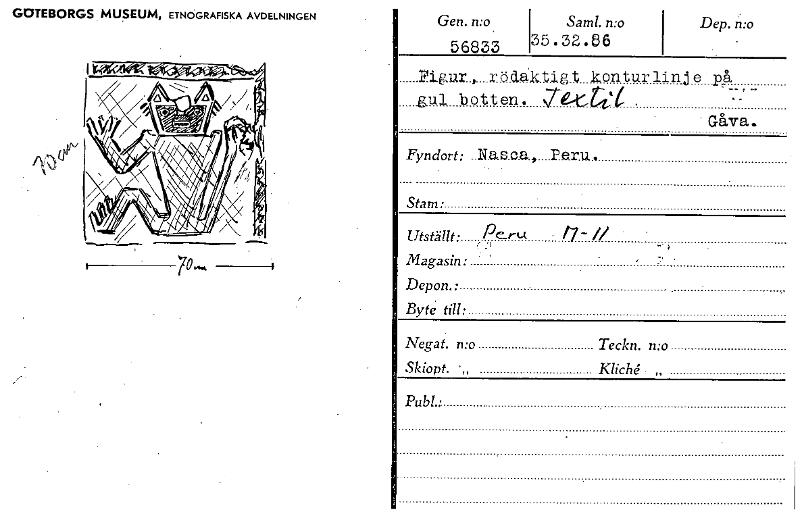 GÖTEBORGS MUSEUM, ETNOGRAFISKA AVDELNINGEN
70 cm
70 cm
Gen. n:o
56833
Saml. n:o
35.32.86
Dep. n:o
Figur, rödaktigt konturlinje på
gul botten. Textil
Gåva.
Fyndort: Nasca, Peru.
Stam:
Utställt: Peru M-11
Magasin:
Depon.:
Byte till:
Negat. n:o Teckn. n:o
Skiopt. „ Kliché „
Publ.: